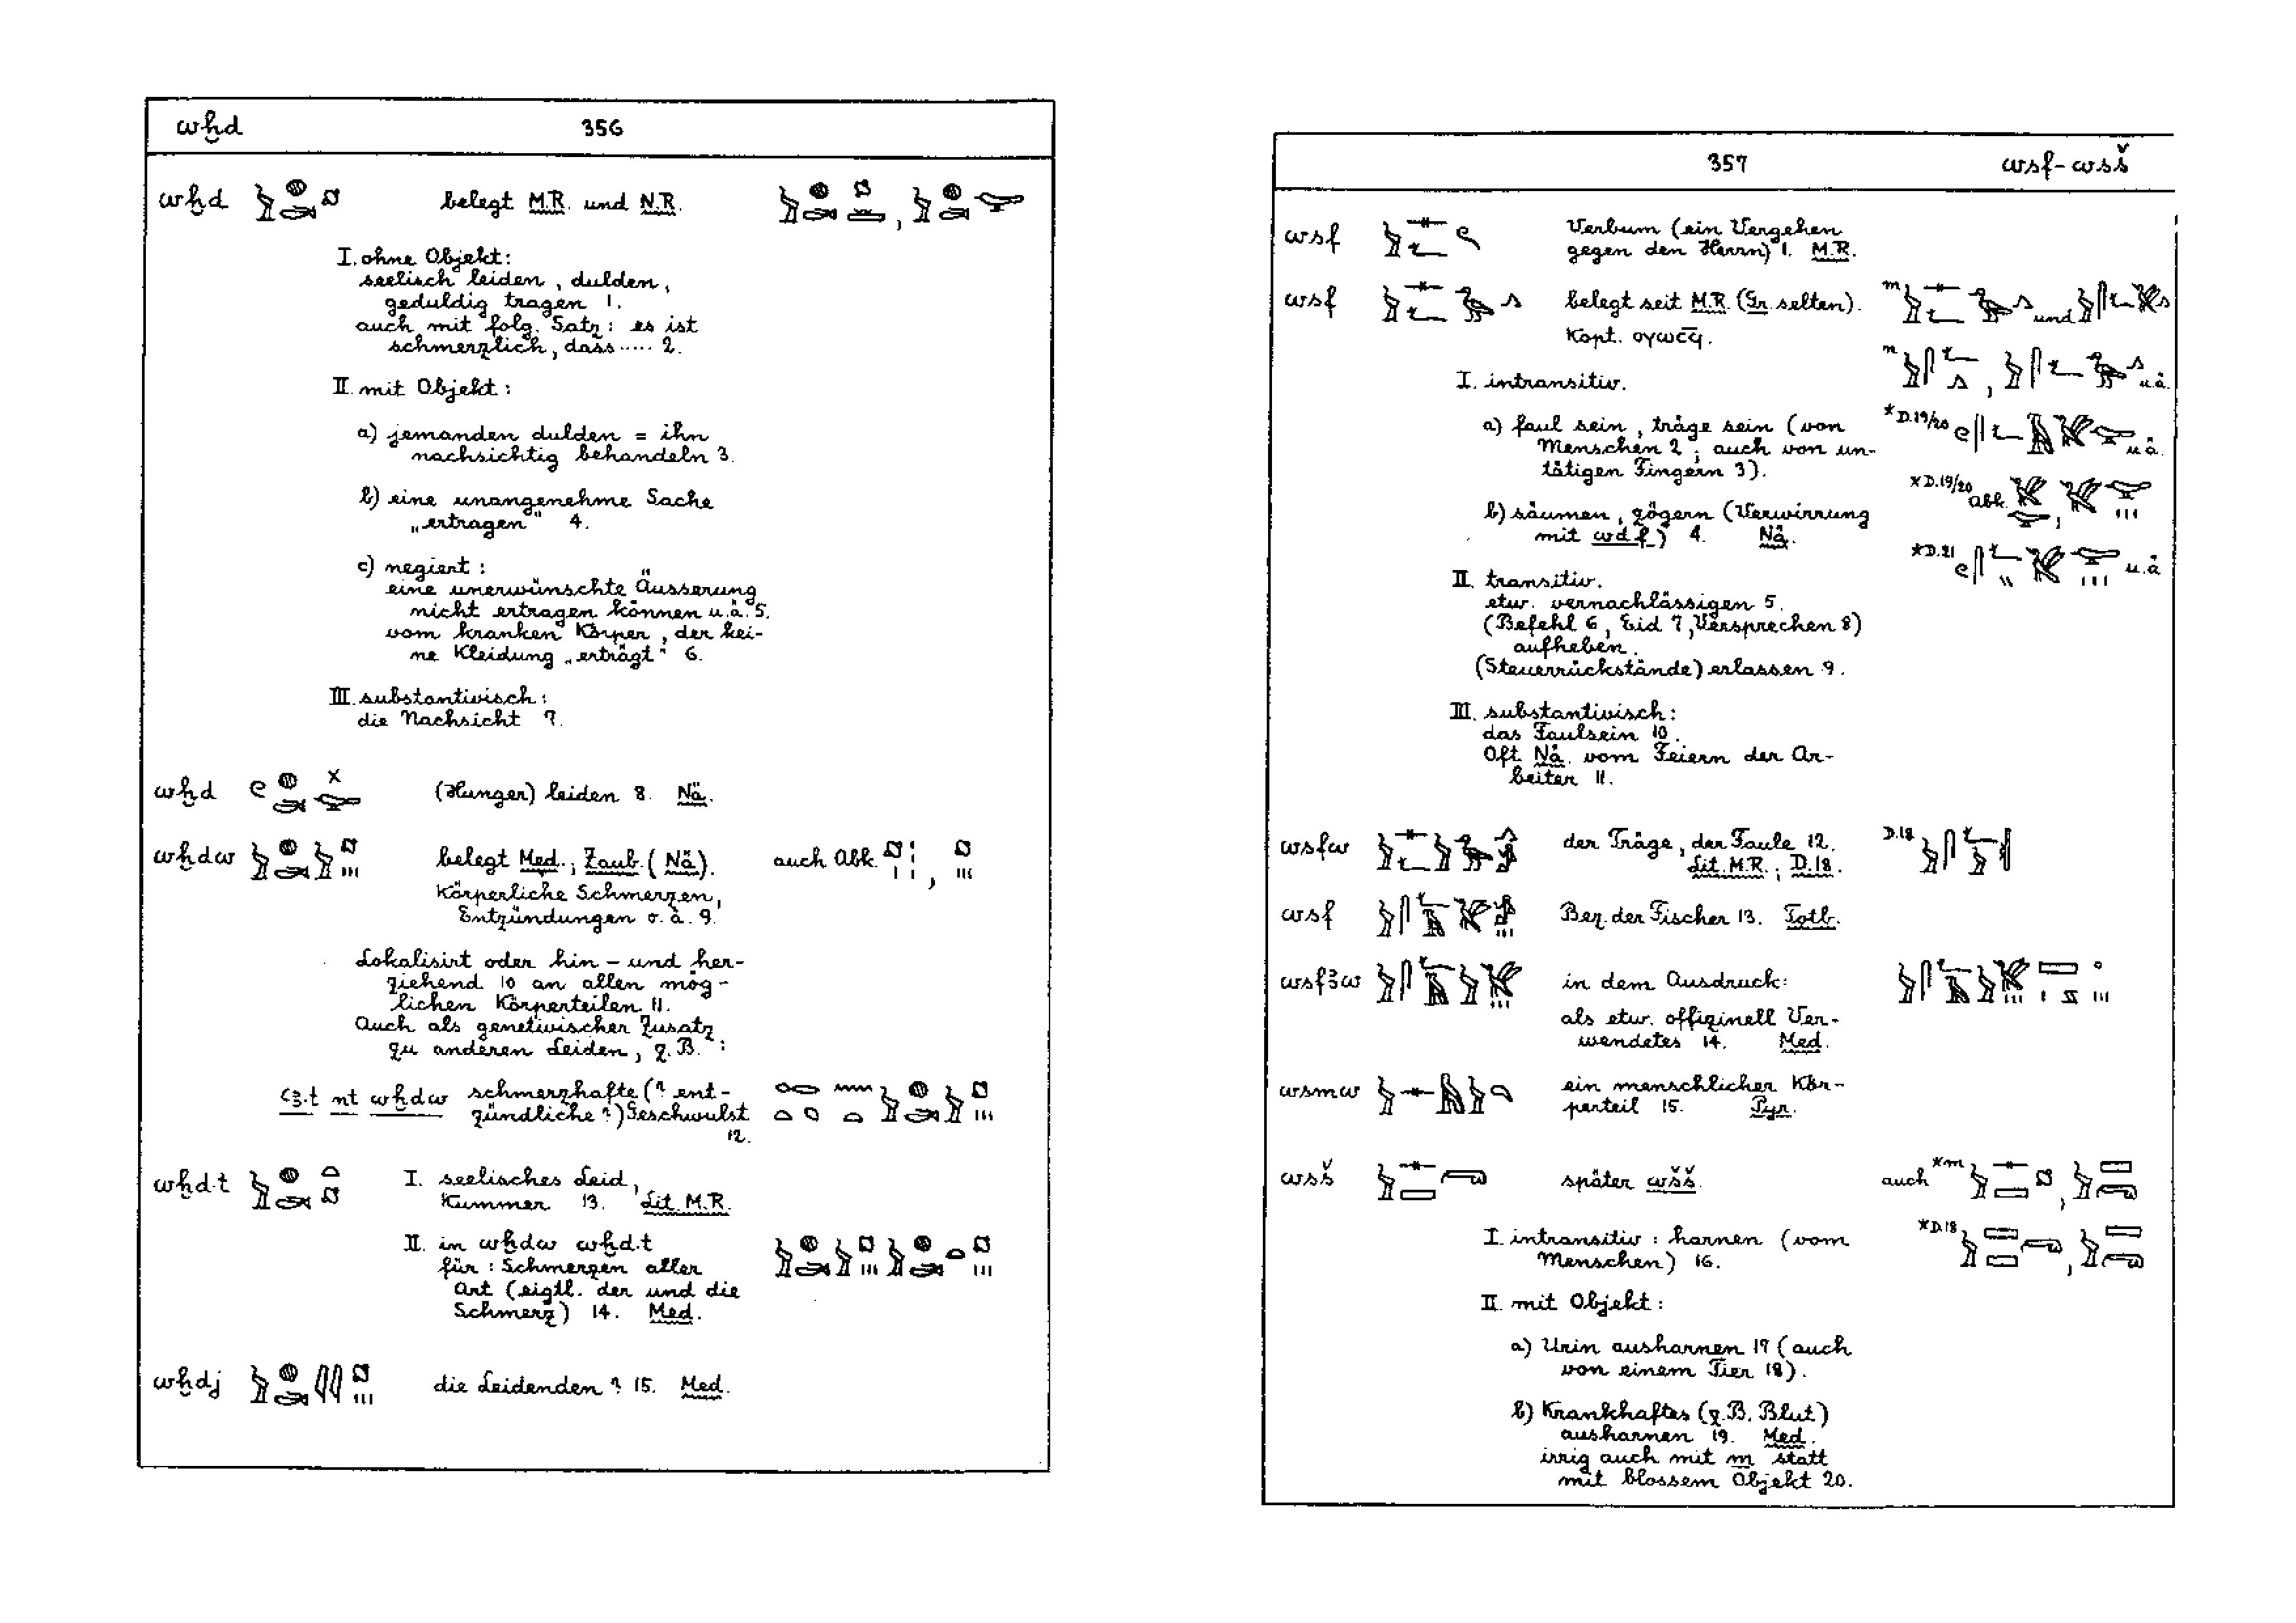 wẖd 356
wẖd belegt M.R. und N.R.
I. ohne Objekt:
seelisch leiden, dulden,
geduldig tragen 1.
auch mit folg. Satz: es ist
schmerzlich, dass ..... 2.
II. mit Objekt:
a) jemanden dulden = ihn
nachsichtig behandeln 3.
b) eine unangenehme Sache
„ertragen" 4.
c) negiert:
eine unerwünschte Äusserung
nicht ertragen können u.ä. 5.
vom kranken Körper, der kei-
ne Kleidung „erträgt" 6.
III. substantivisch:
die Nachsicht 7.
wẖd (Hunger) leiden 8. Nä.
wẖdw belegt Med.; Zaub. (Nä). auch Abk.
Körperliche Schmerzen,
Entzündungen o.ä. 9.
Lokalisirt oder hin- und her-
ziehend 10 an allen mög-
lichen Körperteilen 11.
Auch als genetivischer Zusatz
zu anderen Leiden, z.B.:
ꜥꜣ.t nt wẖdw schmerzhafte (? ent-
zündliche?) Geschwulst
12.
wẖd.t I. seelisches Leid,
Kummer 13. Lit. M.R.
II. in wẖdw wẖd.t
für: Schmerzen aller
Art (eigtl. der und die
Schmerz) 14. Med.
wẖdj die Leidenden? 15. Med.
357 wsf-wsš
wsf Verbum (ein Vergehen
gegen den Herrn) 1. M.R.
wsf belegt seit M.R. (Gr. selten). m und
Kopt. ⲟⲩⲱⲥ̅ϥ.
m , u.ä.
I. intransitiv.
a) faul sein, träge sein (von *D.19/20 u.ä.
Menschen 2; auch von un-
tätigen Fingern 3).
*D.19/20 Abk. ,
b) säumen, zögern (Verwirrung
mit wdf) 4. Nä.
*D.21 u.ä
II. transitiv.
etw. vernachlässigen 5.
(Befehl 6, Eid 7, Versprechen 8)
aufheben.
(Steuerrückstände) erlassen 9.
III. substantivisch:
das Faulsein 10.
Oft Nä. vom Feiern der Ar-
beiter 11.
wsfw der Träge, der Faule 12. D.18
Lit. M.R.; D.18.
wsf Bez. der Fischer 13. Totb.
wsfꜣw in dem Ausdruck:
als etw. offizinell Ver-
wendetes 14. Med.
wsmw ein menschlicher Kör-
perteil 15. Pyr.
wsš später wšš. auch *m ,
*D.18 ,
I. intransitiv: harnen (vom
Menschen) 16.
II. mit Objekt:
a) Urin ausharnen 17 (auch
von einem Tier 18).
b) Krankhaftes (z.B. Blut)
ausharnen 19. Med.
irrig auch mit m statt
mit blossem Objekt 20.